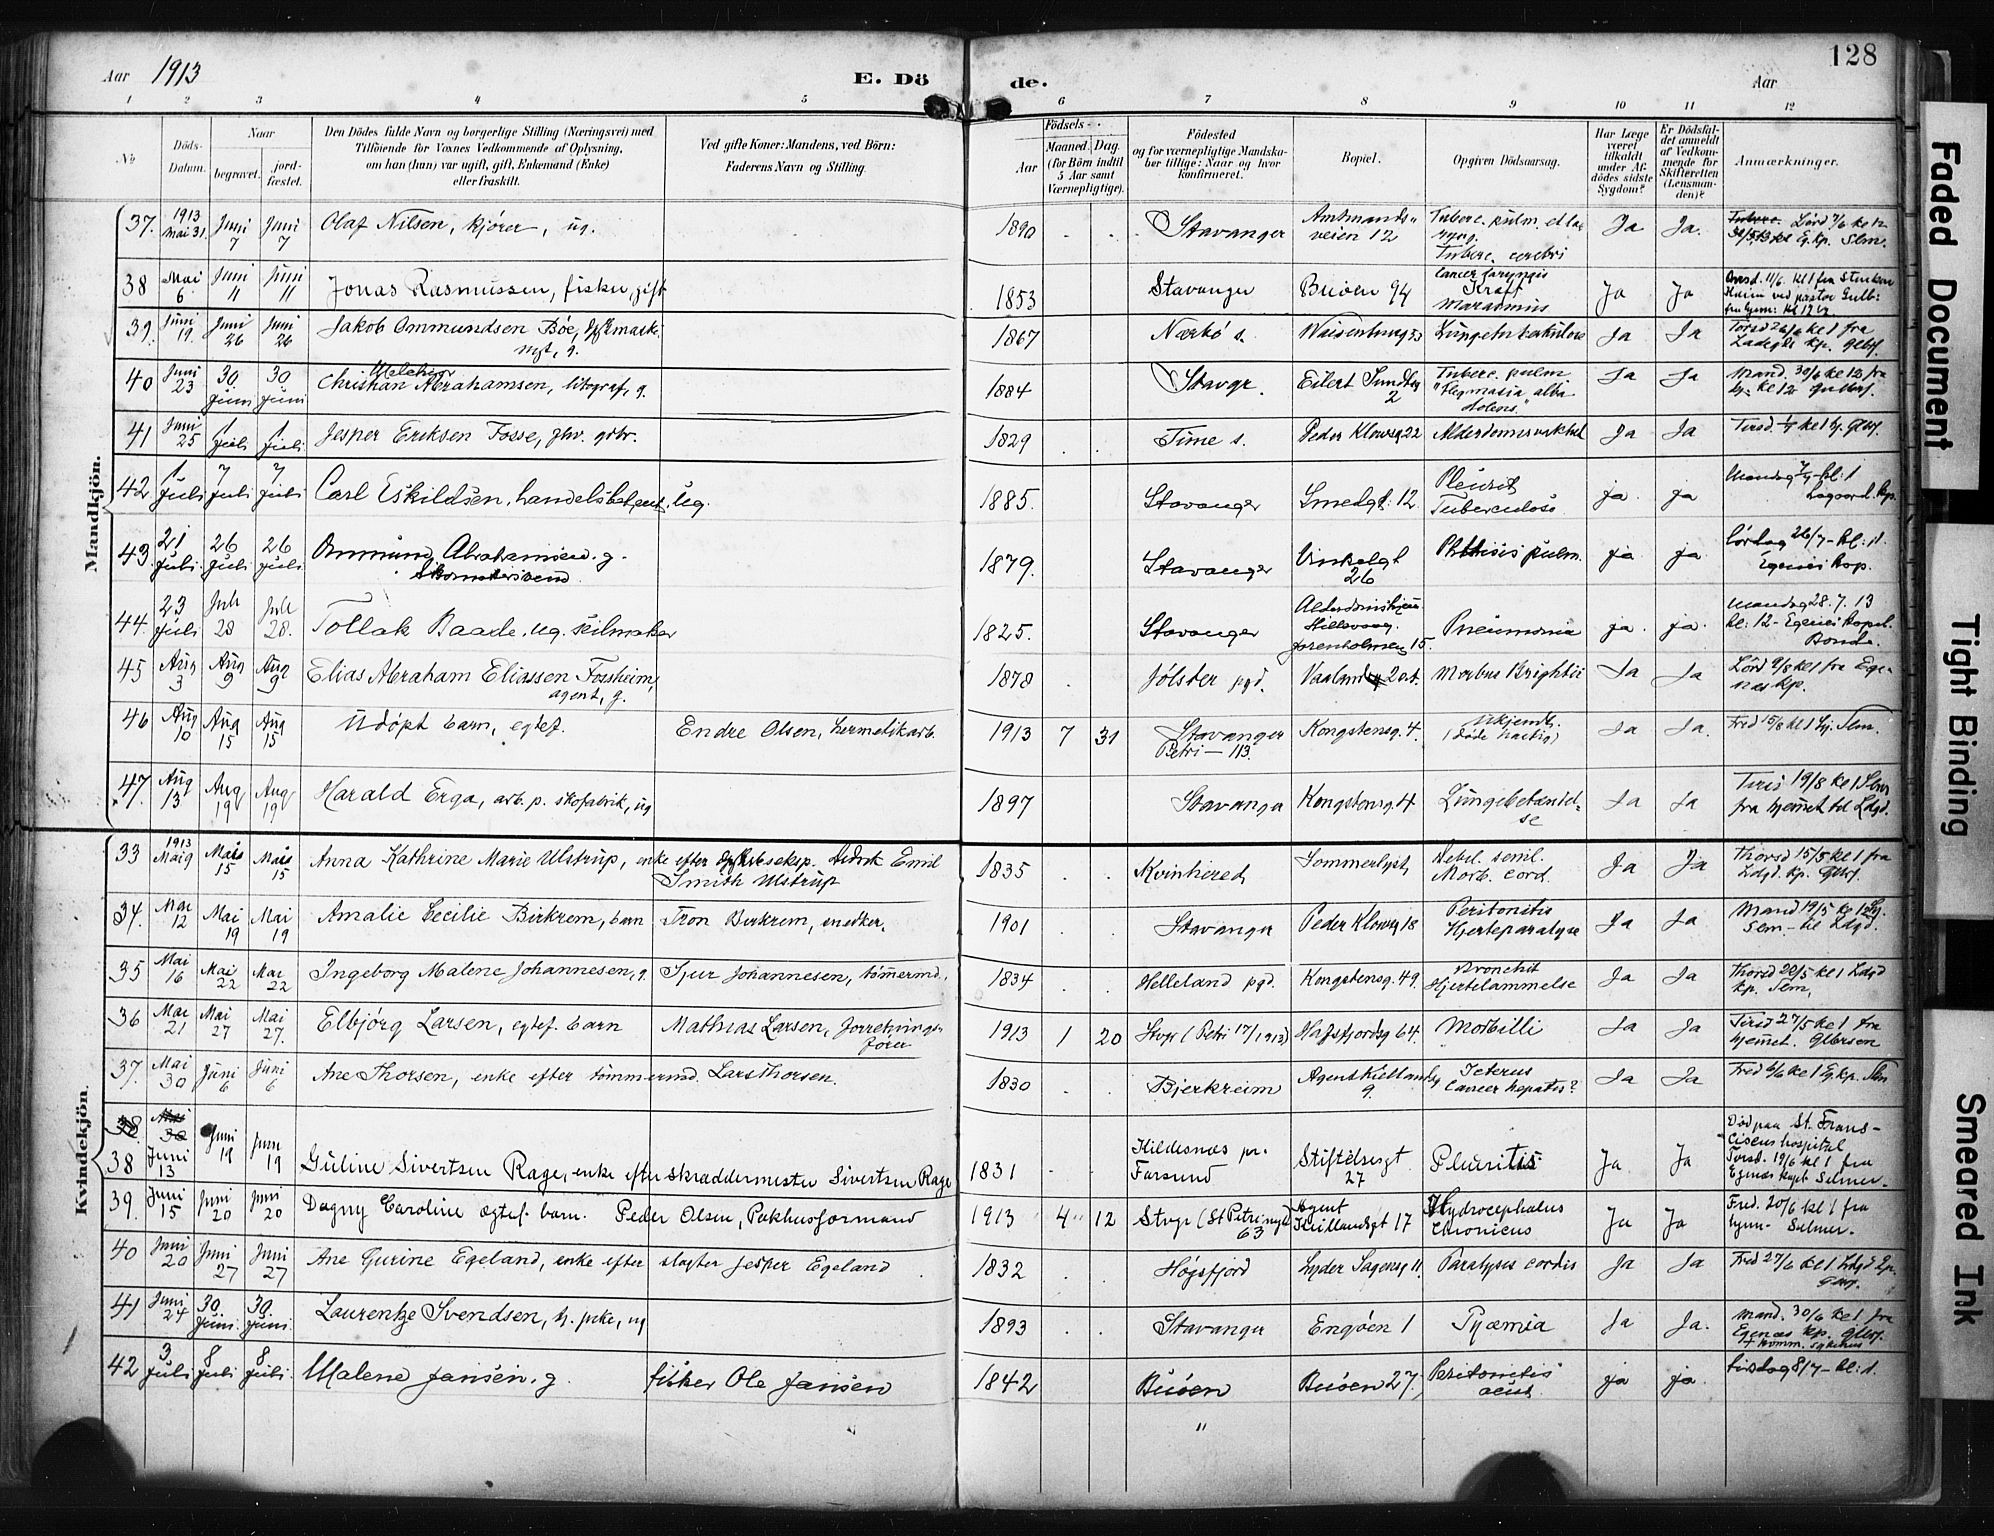 128
Aar 1913
E. Dö de.
Aar
1 2 3 4 5 6 7 8 9 10 11 12
No
Döds-Datum.
Naar
begravet.
jord-fæstet.
Den Dödes fulde Navn og borgerlige Stilling (Næringsvei) med
Tilföiende for Voxnes Vedkommende af Oplysning,
om han (hun) var ugift, gift, Enkemand (Enke)
eller fraskilt.
Ved gifte Koner: Mandens, ved Börn:
Faderens Navn og Stilling.
Födsels-
Aar
Maaned. Dag.
(for Börn indtil
5 Aar samt
Værnepligtige).
Födested
og for værnepligtige Mandska-
ber tillige: Naar og hvor
konfirmeret.
Bopæl.
Opgiven Dödsaarsag.
Har Læge
været
tilkaldt
under Af-
dödes sidste
Sygdom?
Er Dödsfal-
det anmeldt
af Vedkom-
mende for
Skifteretten
(Lensman-
den)?
Anmærkninger.
Mandkjön.
37. 1913 Mai 31. Juni 7 Juni 7 Olaf Nilsen, kjører, ug. 1890 Stavanger Amtmands-veien 12 Ja Ja.
Tuberc. cerebri
38 Mai 6 Juni 11 Juni 11 Jonas Rasmussen, fisker, gift 1853 Stavanger Buøen 94 Kræft Marasmus Ja Ja
39. Juni 19. Juni 26 Juni 26 Jakob Ommundsen Bøe, 1867 Nærbø s. Lungetuberkulose Ja Ja Torsd 26/6 kl 1 fra
40 Juni 23 30. Juni 30. Juni Christian Melchior Abrahamsen, litograf, g. 1884 Stavgr. Eilert Sundtsg 2 Tuberc. pulm "Flegmasia alba dolens." Ja Ja Mand. 30/6 kl 12 fra
41 Juni 25 1 Juli 1 Juli Jesper Eriksen Fosse, 1829 Time s. Peder Klowsg 22 Alderdomssvakhet Ja Ja
42 1 Juli 7 Juli 7 Juli Carl Eskildsen, handelsbetjent, ug. 1885. Stavanger Smedgt. 12 Pleurit Tuberculose ja ja Mandag 7/7 kl: 1
43. 21 Juli 26 Juli 26 Juli Ommund Abrahamsen g. Skomakersvend 1879. Stavanger Vinkelgt 26 Phthisis pulm. ja ja Lørdag 26/7 - kl: 1. Egenes kap.
44. 23 Juli Juli 28 Juli 28. Tollak Baade, ug. seilmaker 1825. Stavanger Pneumonia ja ja. Mandag 28. 7. 13 kl: 12 - Egenes kapel.
45 Aug 3 Aug 9 Aug 9 Elias Abraham Eliassen Fossheim, agent, g. 1878 Jølster pgd. Morbus Brightii Ja Ja Lørd 9/8 kl 1 fra Ege-næs kp.
46 Aug 10 Aug 15 Aug 15 Udøpt barn, egtef. Endre Olsen, hermetikarb. 1913 7 31 Stavanger Petri - 113. Kongstensg. 4. Ukjendt. (døde hastig) Ja Ja. Fred 15/8 kl 1 hj. Slm.
47. Aug 13 Aug 19 Aug 19 Harald Erga, arb. p. skofabrik, ug 1897 Stavanger Kongstensg. 4 Lungebetændel-se Ja Ja Tirs 19/8 kl 1 fra hjemmet
Kvindekjön.
33 1913 Mai 9 Mai 15 Mai 15 Anna Kathrine Marie Ulstrup, enke efter Smith Ulstrup 1835 Kvinhered Sommerlyst Debil. senil. Morb. cord. Ja Ja Thorsd 15/5 kl 1 fra Ldgd. kp. Glbrs.
34. Mai 12 Mai 19 Mai 19 Amalie Cecilie Birkrem, barn Tron Birkrem, snedker. 1901 Stavanger Peder Klowsg 18 Peritonitis Hjerteparalyse Ja Ja Mand 19/5
35 Mai 16 Mai 22 Mai 22 Ingeborg Malene Johannesen, g. Sjur Johannesen, tømmermd. 1834 Helleland pgd. Kongstensg. 49. Bronchit Hjertelammelse Ja Ja Thorsd 22/5 kl 1 Ldgd kp. Slm.
36 Mai 21 Mai 27 Mai 27. Elbjørg Larsen, egtef. barn Mathias Larsen, Forretnings-fører 1913 1 20 Stvgr (Petri 17/1913) Hafrsfjordsg 64. Morbilli Ja Ja Tirsd 27/5 kl 1 fra hjemmet.
37. Mai 30 Juni 6 Juni 6 Ane Thorsen, enke efter tømmermd. Lars Thorsen. 1830 Bjerkreim 9. Icterus Cancer hepatis? Ja Ja Fred 6/6 kl 1 Eg. kp. Slm
38 Juni 13 Juni 19 Juni 19 Guline Sivertsen Rage, enke efter skræddermester Sivertsen Rage 1831 Kildesnæs pr. Farsund Stiftelsesgt 27 Pleuritis Ja Ja Død paa St. Frans-ciscus hospital Torsd. 19/6 kl 1 fra Egenæs kapel Selmer.
39. Juni 15 Juni 20 Juni 20 Dagny Caroline egtef. barn. Peder Olsen, Pakhusformand 1913 4 12 Stvgr (St Petri 63 Agent Kiellandsgt 17 Hydrocephalus Chronicus Ja Ja Fred. 20/6 kl 1 fra hjem - Selmer.
40 Juni 20 Juni 27 Juni 27 Ane Gurine Egeland, enke efter slagter Jesper Egeland 1832 Høgsfjord Lyder Sagensg 11. Paralysis cordis Ja Ja Fred 27/6 kl 1 Ldgd kp.
41 Juni 24 30. Juni 30. Juni. Laurentze Svendsen, ug 1893 Stavanger Engøen 1 Pyæmia Ja Ja. Mand. 30/6 kl 1 fra Egenæs kp.
42 3 Juli 8 Juli 8 Juli Malene Jansen. g. fisker Ole Jansen 1842 Buøen Buøen 27 Peritonitis acut. ja ja. Tirsdag 8/7 - kl: 1.
"
Faded Document
Tight Binding
Smeared Ink